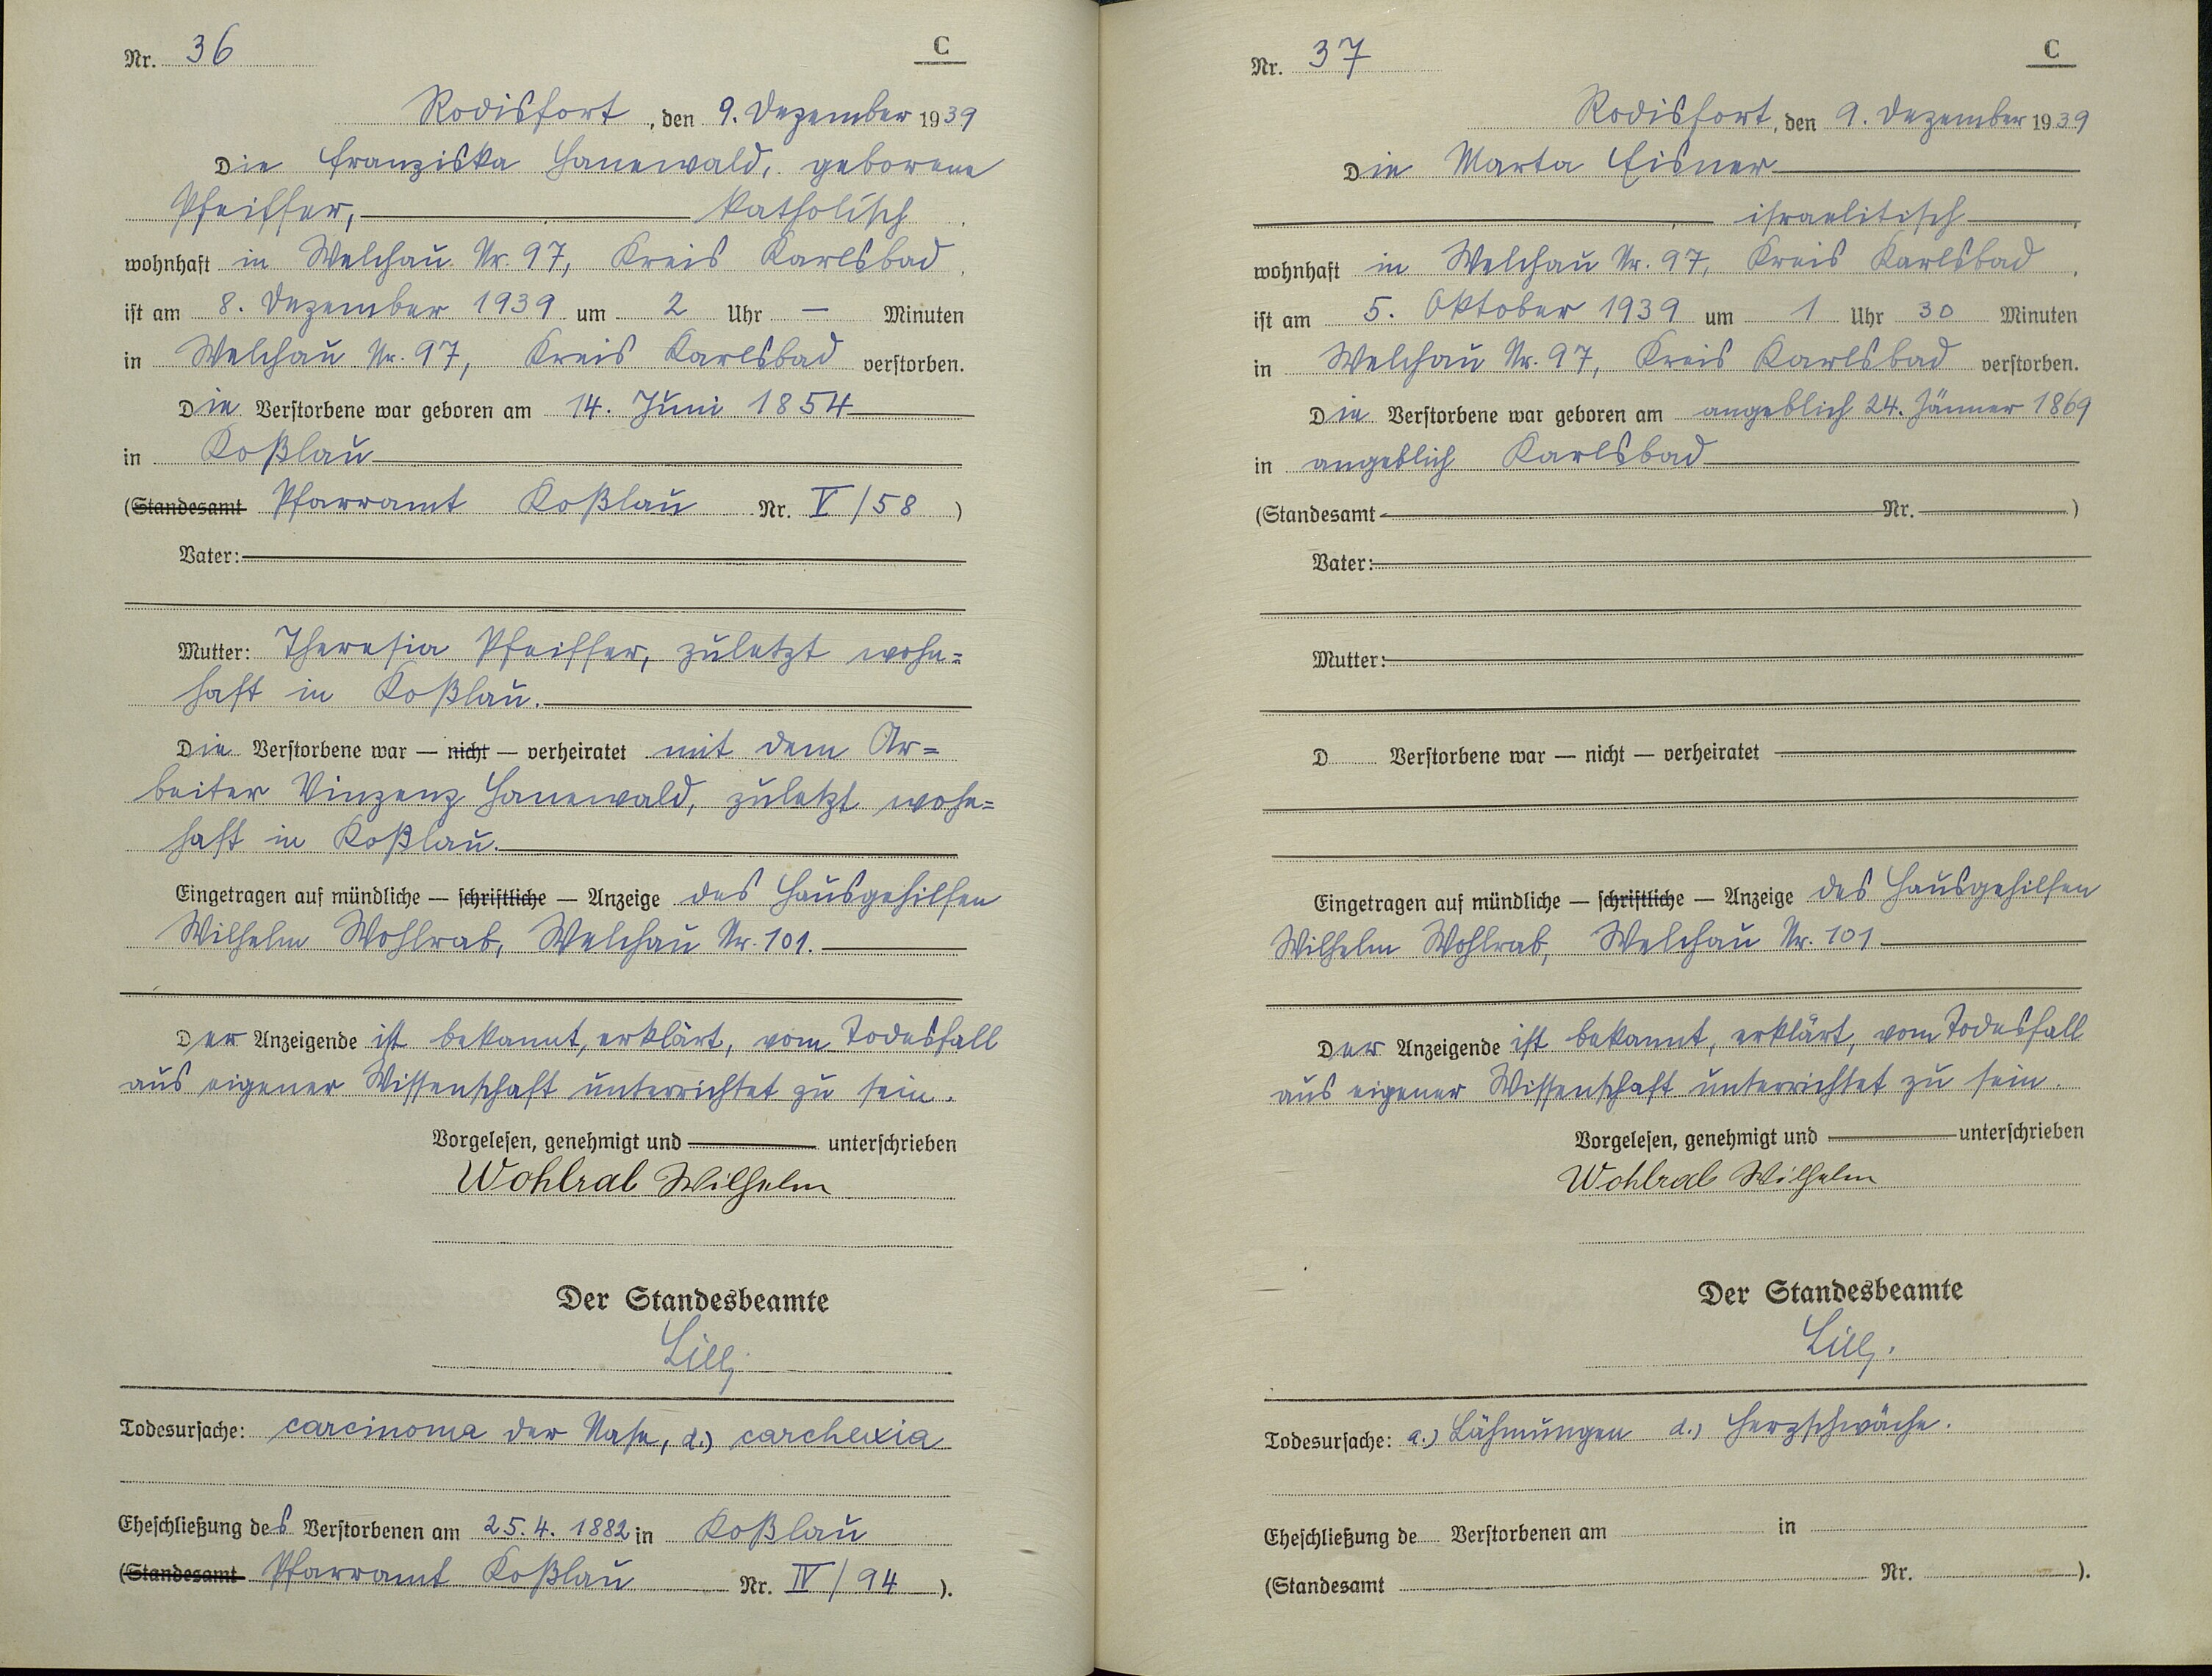 Nr. 36
C
Rodisfort, den 9. Dezember 1939
Die Franziska Hanewald, geborene
Pfeiffer, katholisch
wohnhaft in Welchau Nr. 97, Kreis Karlsbad
ist am 8. Dezember 1939 um 2 Uhr — Minuten
in Welchau Nr. 97, Kreis Karlsbad verstorben.
Die Verstorbene war geboren am 14. Juni 1854
in Koßlau
(Standesamt Pfarramt Koßlau Nr. V/58 )
Vater:
Mutter: Theresia Pfeiffer, zuletzt wohn=
haft in Koßlau.
Die Verstorbene war — nicht — verheiratet mit dem Ar=
beiter Vinzenz Hanewald, zuletzt wohn=
haft in Koßlau.
Eingetragen auf mündliche — schriftliche — Anzeige des Hausgehilfen
Wilhelm Wohlrab, Welchau Nr. 101.
Der Anzeigende ist bekannt, erklärt, vom Todesfall
aus eigener Wissenschaft unterrichtet zu sein.
Vorgelesen, genehmigt und unterschrieben
Wohlrab Wilhelm
Der Standesbeamte
Todesursache: carcinoma der Nase, d.) carchexia
Eheschließung des Verstorbenen am 25.4.1882 in Koßlau
(Standesamt Pfarramt Koßlau Nr. IV/94 ).
Nr. 37
C
Rodisfort, den 9. Dezember 1939
Die Marta Eisner
israelitisch
wohnhaft in Welchau Nr. 97, Kreis Karlsbad
ist am 5. Oktober 1939 um 1 Uhr 30 Minuten
in Welchau Nr. 97, Kreis Karlsbad verstorben.
Die Verstorbene war geboren am angeblich 24. Jänner 1869
in angeblich Karlsbad
(Standesamt Nr. )
Vater:
Mutter:
D Verstorbene war — nicht — verheiratet
Eingetragen auf mündliche — schriftliche — Anzeige des Hausgehilfen
Wilhelm Wohlrab, Welchau Nr. 101
Der Anzeigende ist bekannt, erklärt, vom Todesfall
aus eigener Wissenschaft unterrichtet zu sein.
Vorgelesen, genehmigt und unterschrieben
Wohlrab Wilhelm
Der Standesbeamte
Todesursache: a.) Lähmungen d.) Herzschwäche.
Eheschließung de Verstorbenen am in
(Standesamt Nr. ).